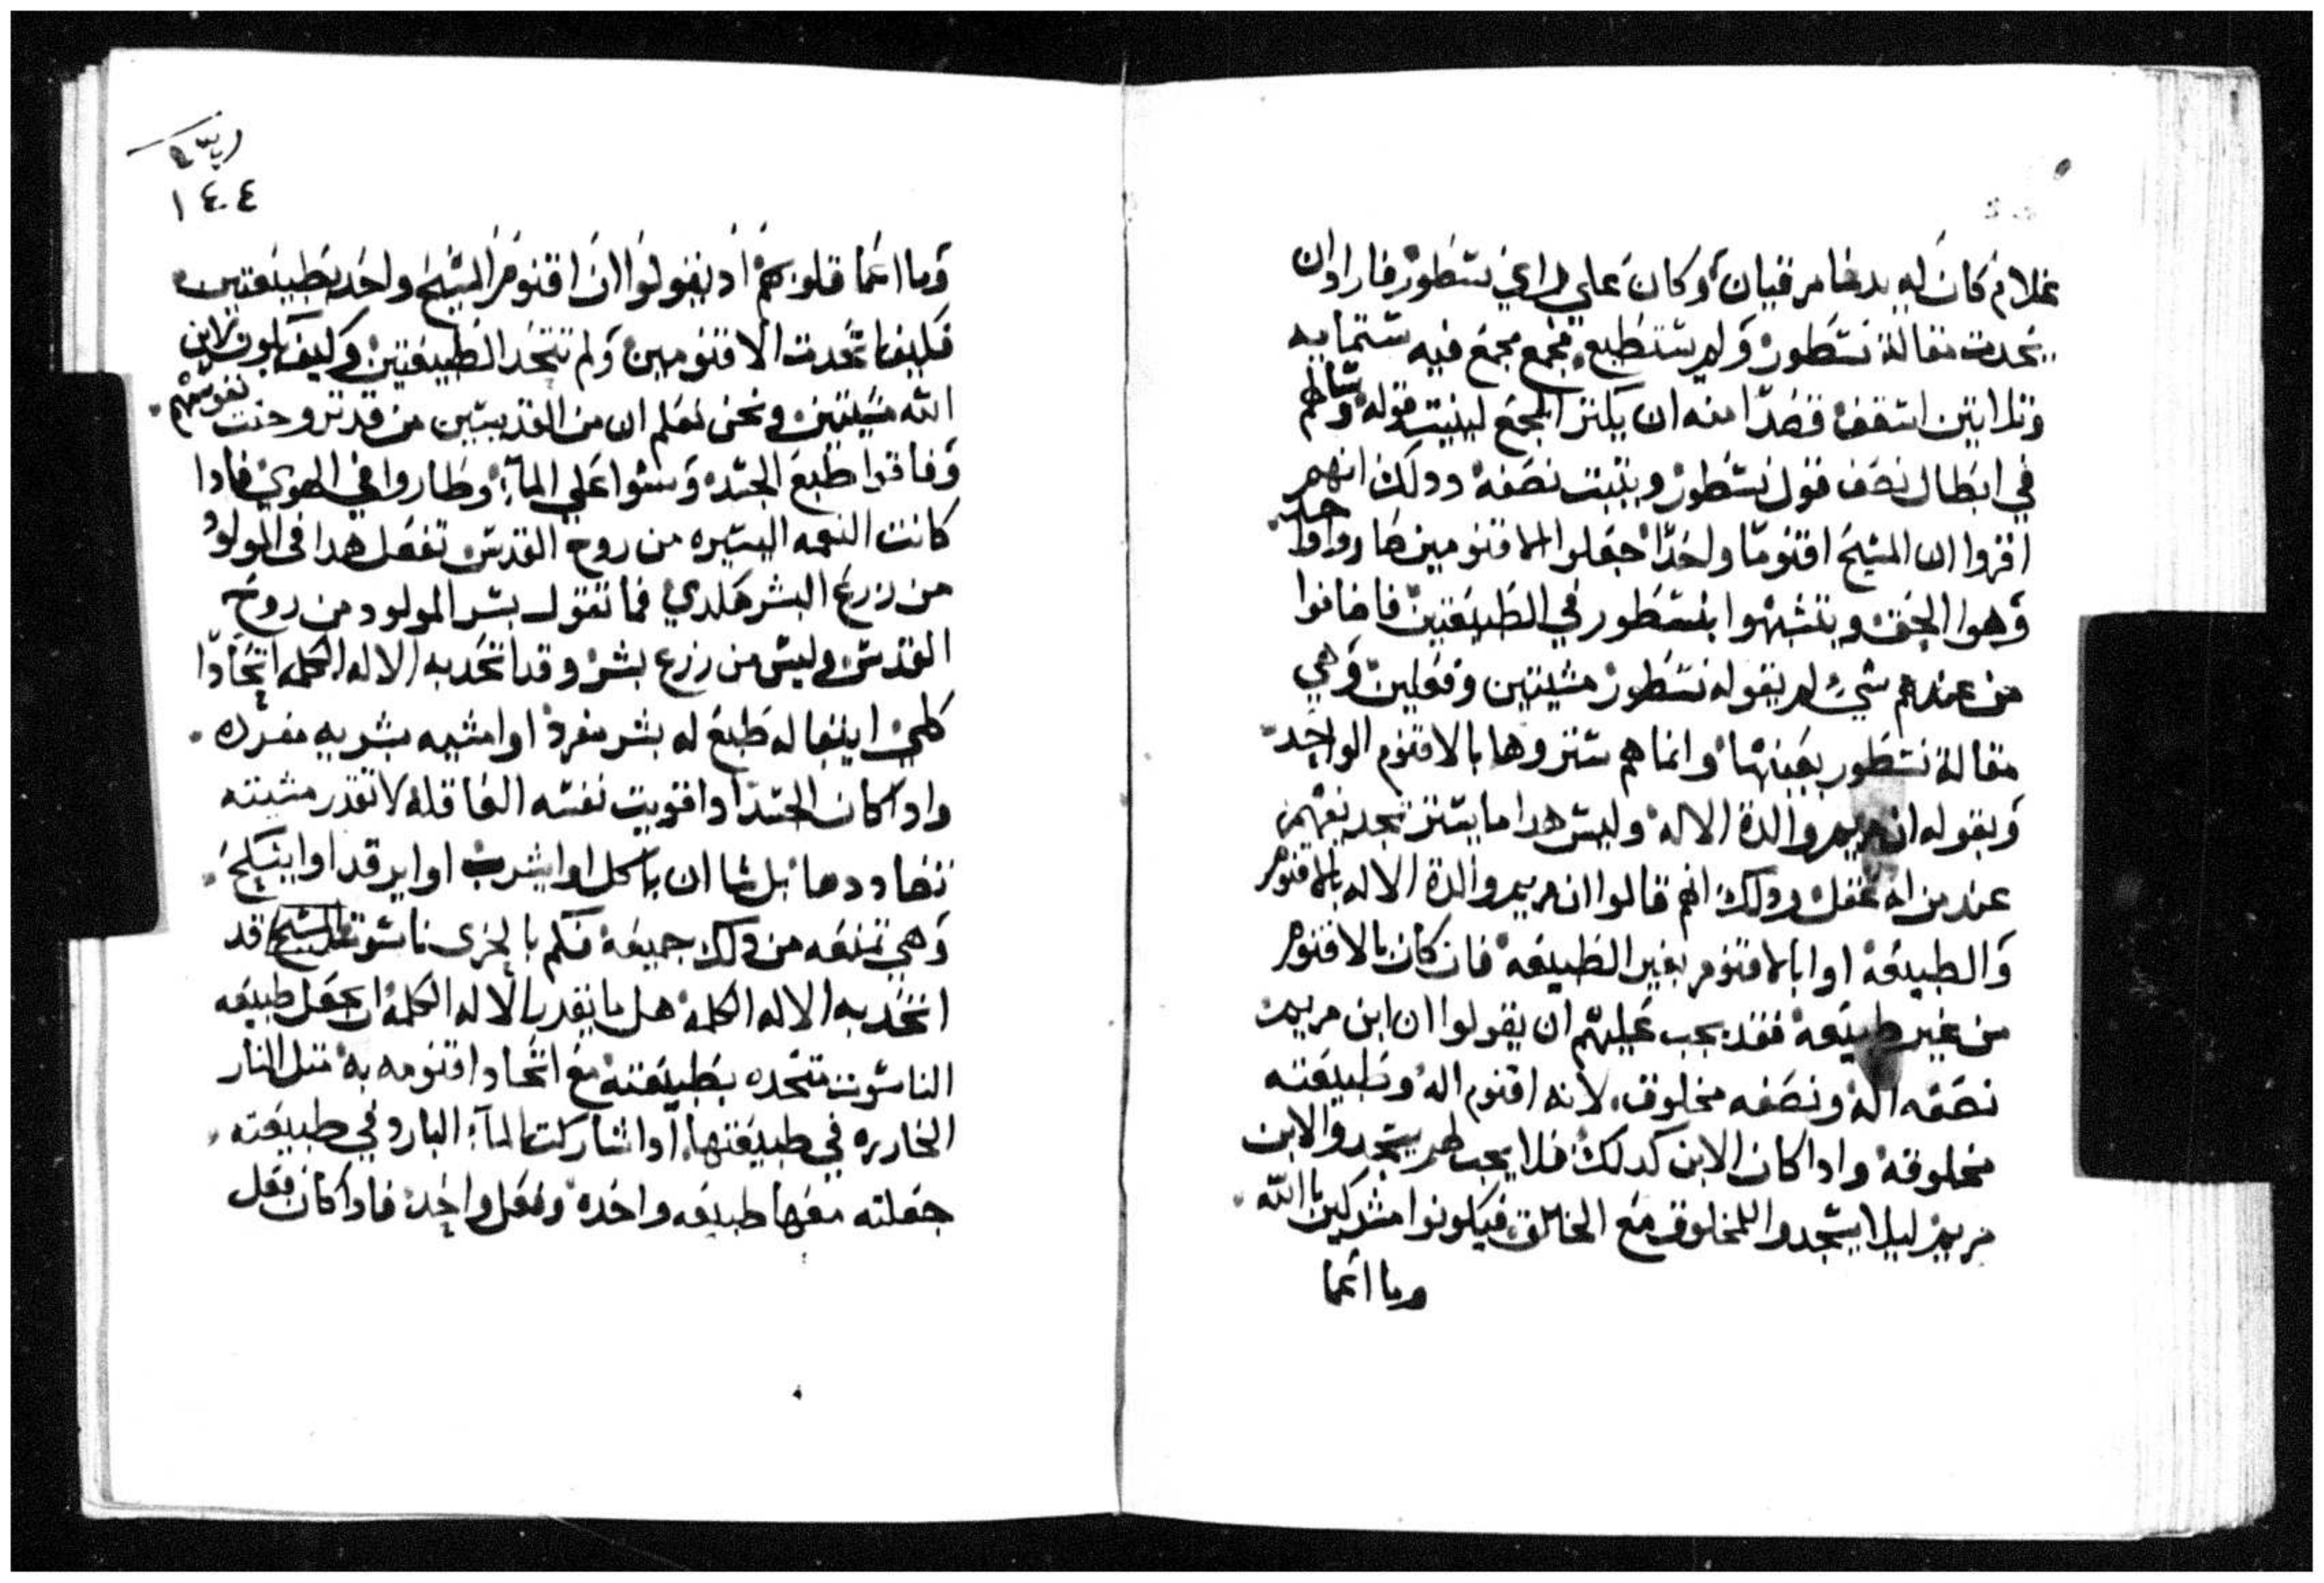 غلام كان له يدعا مرقيان وكان علي راي نسطور فاراد ان
يجدد مقالة نسطور ولم يستطيع مجمع مجمع فيه ستمايه
وتلاتين اسقف قصدا منه ان يكتر المجمع ليتبت قوله وسالهم
في ابطال نصف قول نسطور ويتبت نصفه ودلك انهم
اقروا ان المسيح اقنوما واحدا جعلوا الاقنومين صاروا واحد
وهوا الحق ويتشبهوا بنسطور في الطبيعتين فاضافوا
من عندهم شي لم يقوله نسطور مشيتين وفعلين وهي
مقالة نسطور بعينها وانما هم ستروها بالاقنوم الواحد
وبقوله ان مريم والدة الاله وليس هدا ما يستر تجديفهم
عند من له عقل ودلك انهم قالوا ان مريم والدة الاله بالاقنوم
والطبيعه اوا بالاقنوم بغير الطبيعه فان كان بالاقنوم
من غير طبيعه فقد يجب عليهم ان يقولوا ان ابن مريم
نصفه اله ونصفه مخلوق لانه اقنوم اله وطبيعته
مخلوقه وادا كان الابن كدلك فلا يجب لهم يسجدوا لابن
مريم ليلا يسجدوا للمخلوق مع الخالق فيكونوا مشركين بالله
وما اعما
١٤٤
وما اعما قلوبهم اد يقولوا ان اقنوم المسيح واحد بطبيعتين
فكيف اتحدت الاقنومين ولم تتحد الطبيعتين وكيف يكون لابن
الله مشيتين ونحن نعلم ان من القديسين من قد تروحنت نفوسهم
وفاقوا طبع الجسد ومشوا علي الماء وطاروا في الهوي فادا
كانت النعمه اليسيره من روح القدس تفعل هدا في المولود
من زرع البشر هكدي فما تقول بشر المولود من روح
القدس وليس من زرع بشر وقد اتحد به الاله الكلمه اتحادا
كلي ايبقا له طبع له بشر مفرد اوا مشيه بشريه مفرده
وادا كان الجسد ادا قويت نفسه العاقله لا تقدر مشيته
تضاددها بل شا ان ياكل اوا يشرب اوا يرقد اوا ينكح
وهي تمنعه من دلك جميعه فكم بالحري ناسوت المسيح قد
اتحد به الاله الكلمه هل ما يقدر الاله الكلمه ان يجعل طبيعه
الناسوت متحده بطبيعته مع اتحاد اقنومه به متل النار
الحاره في طبيعتها ادا شاركت الماء البارد في طبيعته
جعلته معها طبيعه واحده وفعل واحد فادا كان فعل